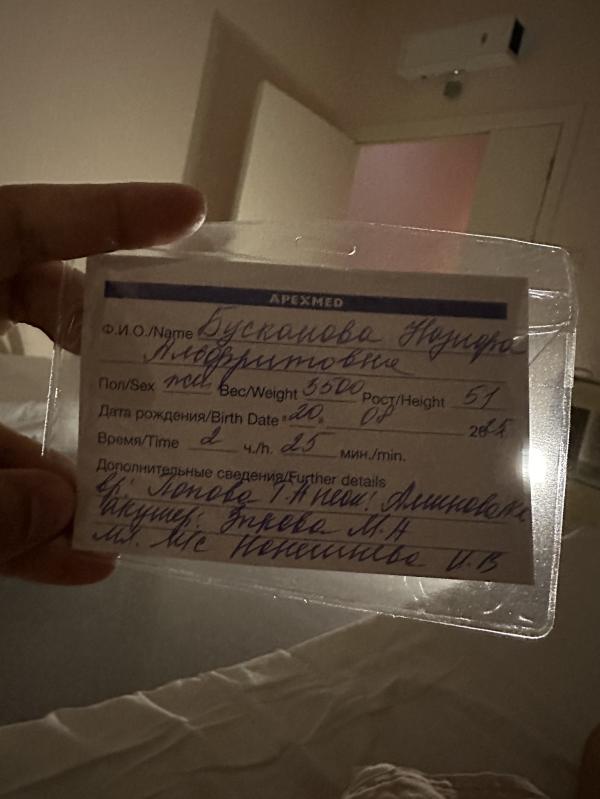 APEXMED
Ф.И.О./Name Бусканова Назифа
Альфритовна
Пол/Sex жен Вес/Weight 3500 Рост/Height 51
Дата рождения/Birth Date "20" 08 2025
Время/Time 2 ч./h. 25 мин./min.
Дополнительные сведения/Further details
вр: Попова Т.А неон:
Акушер: М.А
мл. м/с И.В